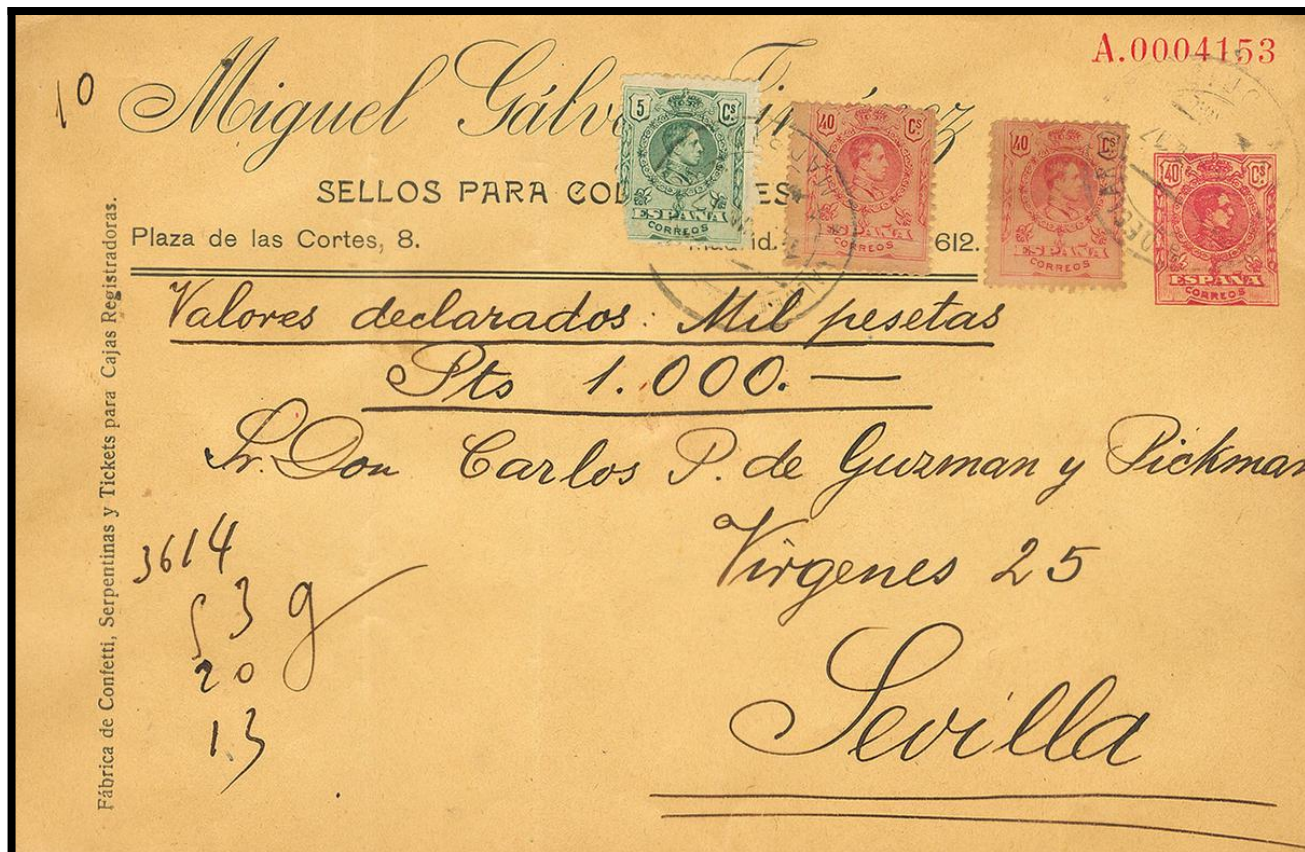 A.0004153
10
Miguel Gálv
SELLOS PARA COL ES
Plaza de las Cortes, 8. Madrid. 612.
5 Cs
ESPAÑA
CORREOS
40 Cs
ESPAÑA
CORREOS
40 Cs
ESPAÑA
CORREOS
40 Cs
ESPAÑA
CORREOS
Valores declarados: Mil pesetas
Pts 1.000.—
Sr. Don Carlos P. de Guzman y Pickman
Virgenes 25
Sevilla
3614
53 g
20
13
Fábrica de Confetti, Serpentinas y Tickets para Cajas Registradoras.